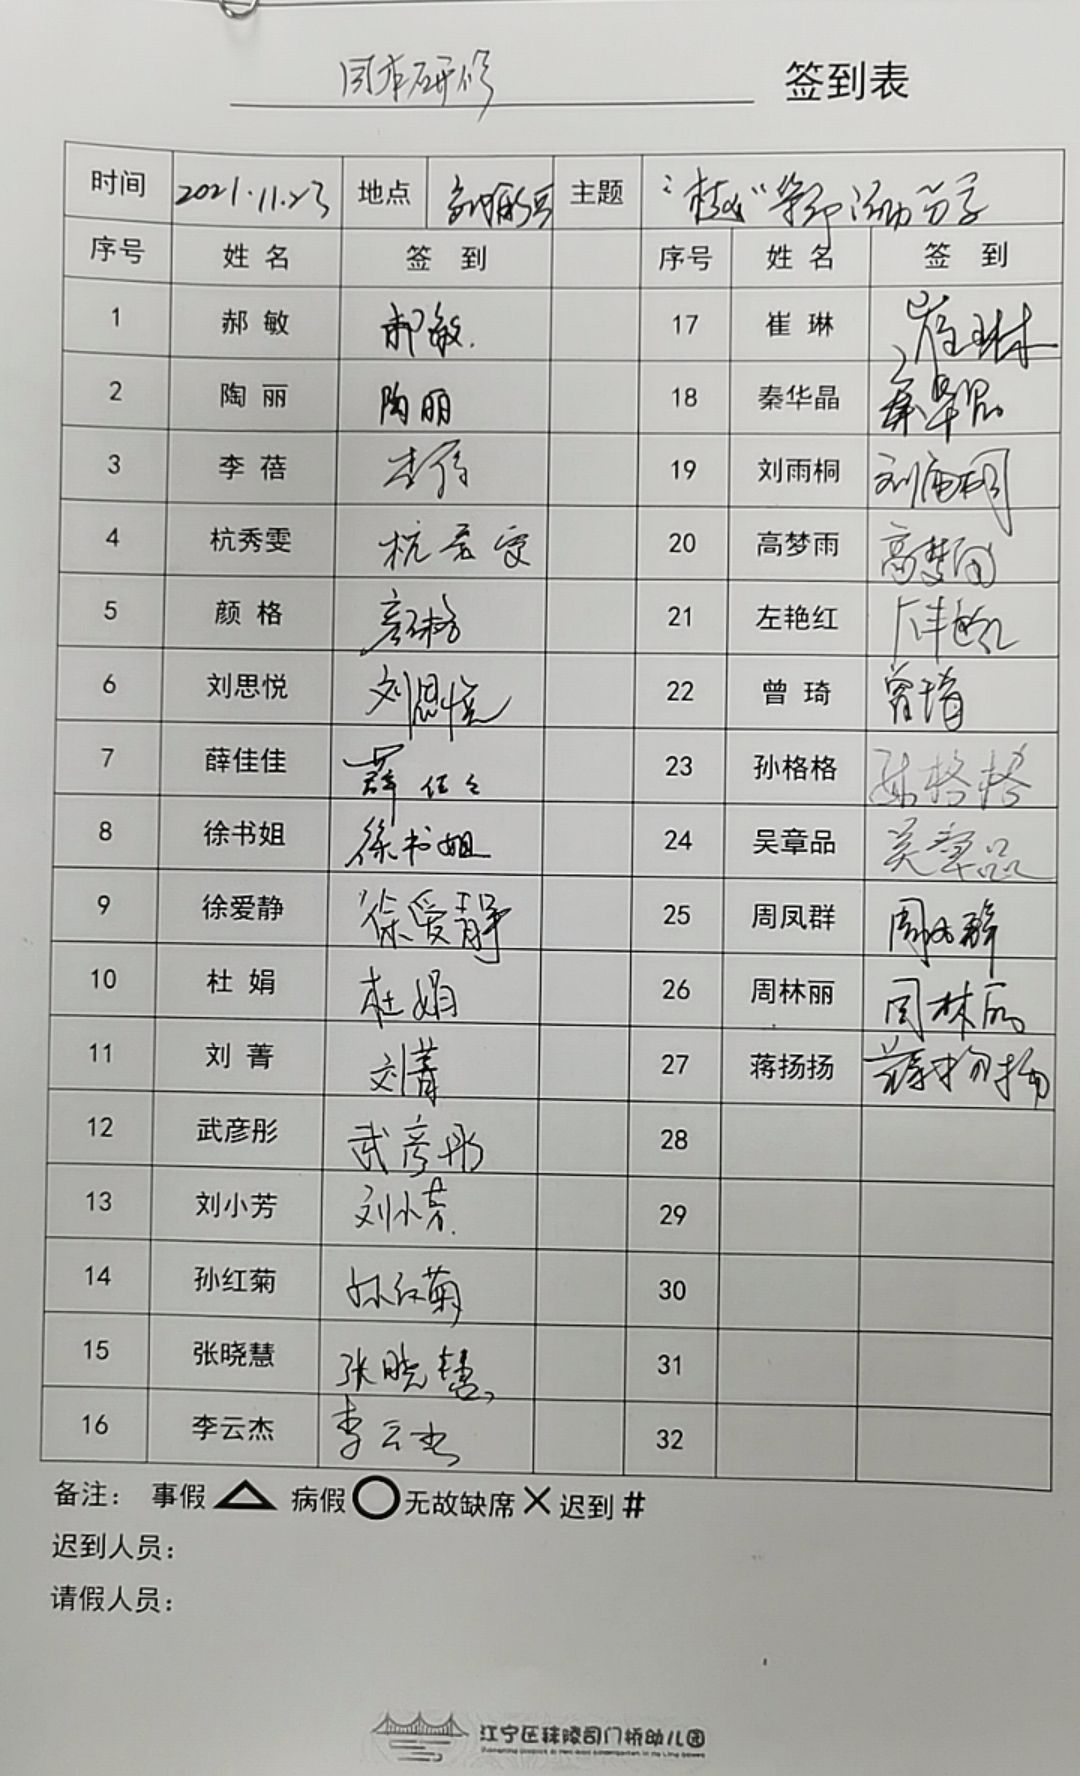 园本研修 签到表
时间 2021.11.23 地点 主题 活动分享
序号 姓名 签到 序号 姓名 签到
1 郝敏 郝敏. 17 崔琳 崔琳
2 陶丽 陶丽 18 秦华晶 秦华晶
3 李蓓 李蓓 19 刘雨桐 刘雨桐
4 杭秀雯 杭秀雯 20 高梦雨 高梦雨
5 颜格 颜格 21 左艳红 左艳红
6 刘思悦 刘思悦 22 曾琦 曾琦
7 薛佳佳 薛佳佳 23 孙格格 孙格格
8 徐书姐 徐书姐 24 吴章品 吴章品
9 徐爱静 徐爱静 25 周凤群 周凤群
10 杜娟 杜娟 26 周林丽 周林丽
11 刘菁 刘菁 27 蒋扬扬 蒋扬扬
12 武彦彤 武彦彤 28
13 刘小芳 刘小芳. 29
14 孙红菊 孙红菊 30
15 张晓慧 张晓慧 31
16 李云杰 李云杰 32
备注： 事假 △ 病假 ○ 无故缺席 × 迟到 #
迟到人员：
请假人员：
江宁区秣陵司门桥幼儿园